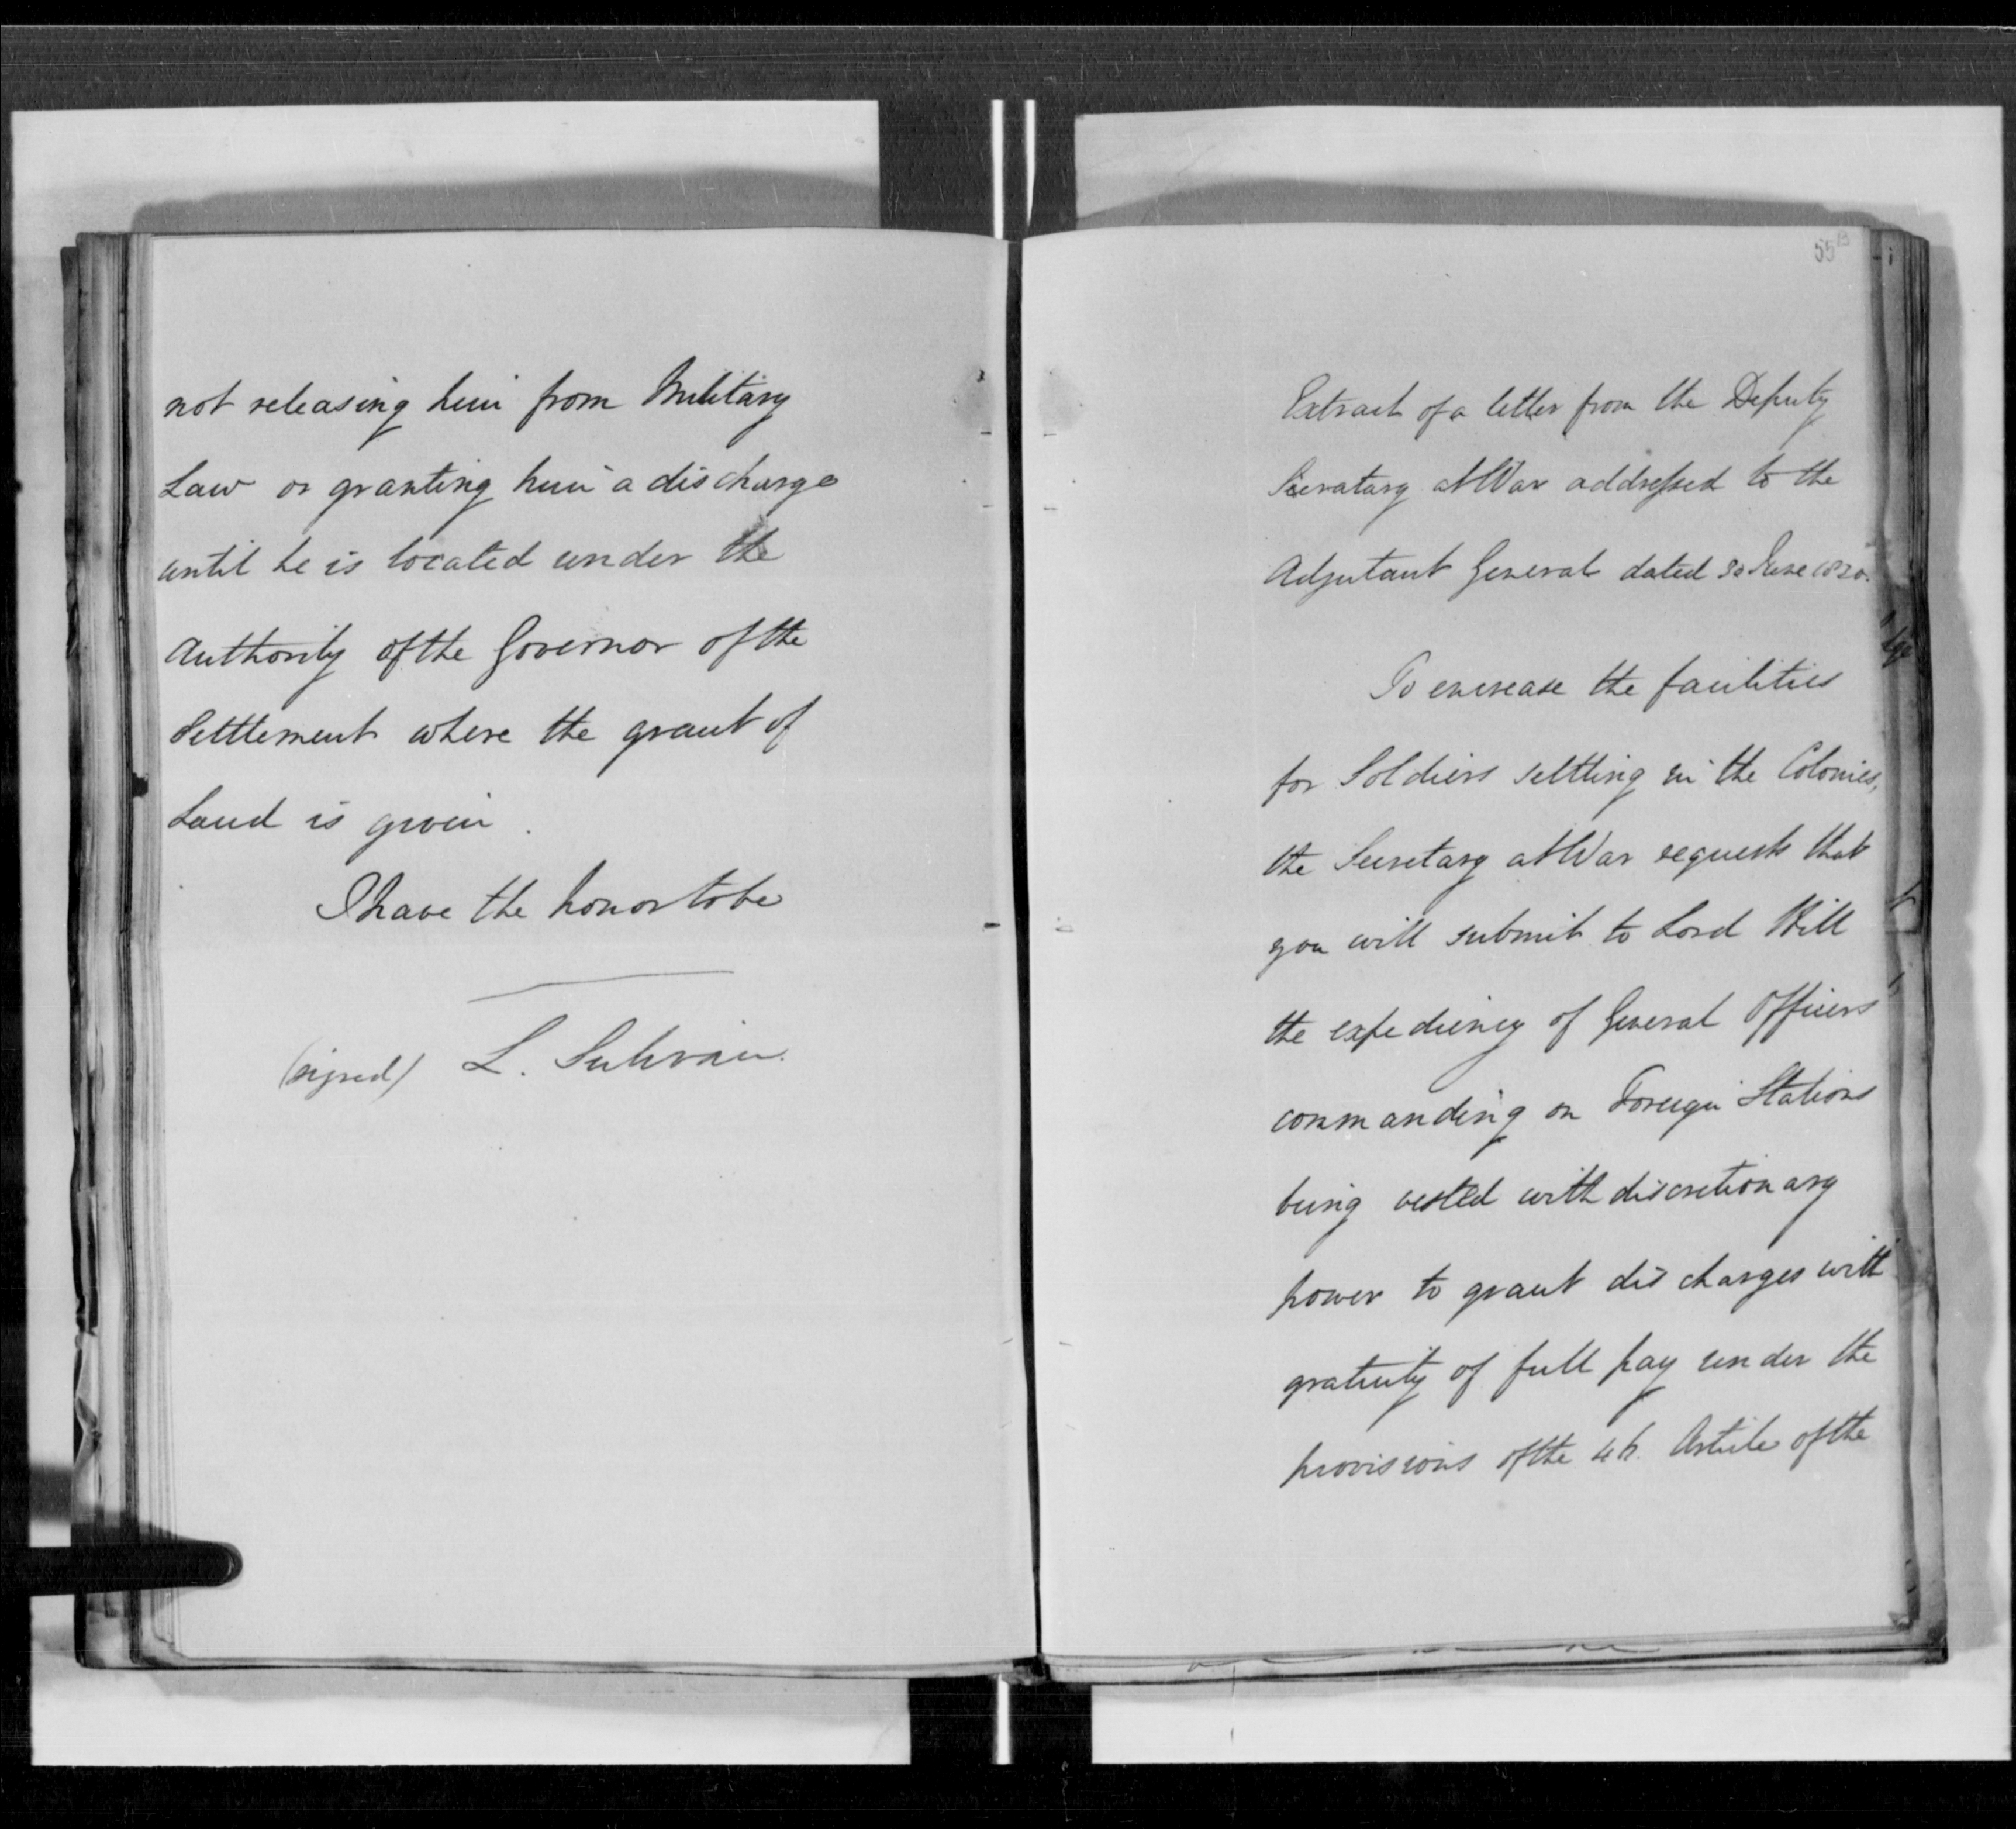 not releasing him from Military
Law or granting him a discharge
until he is located under the
Authority of the Governor of the
Settlement where the grant of
Land is given.
I have the honor to be
(signed) L. Sulivan.
55B
Extract of a letter from the Deputy
Secratary at War addressed to the
Adjutant General dated 30 June 1830.
To encrease the facilities
for Soldiers settling in the Colonies,
the Secretary at War requests that
you will submit to Lord Hill
the expediency of General Officers
commanding on Foreign Stations
being vested with discretionary
power to grant discharges with
gratuity of full pay under the
provisions of the 4th. Article of the